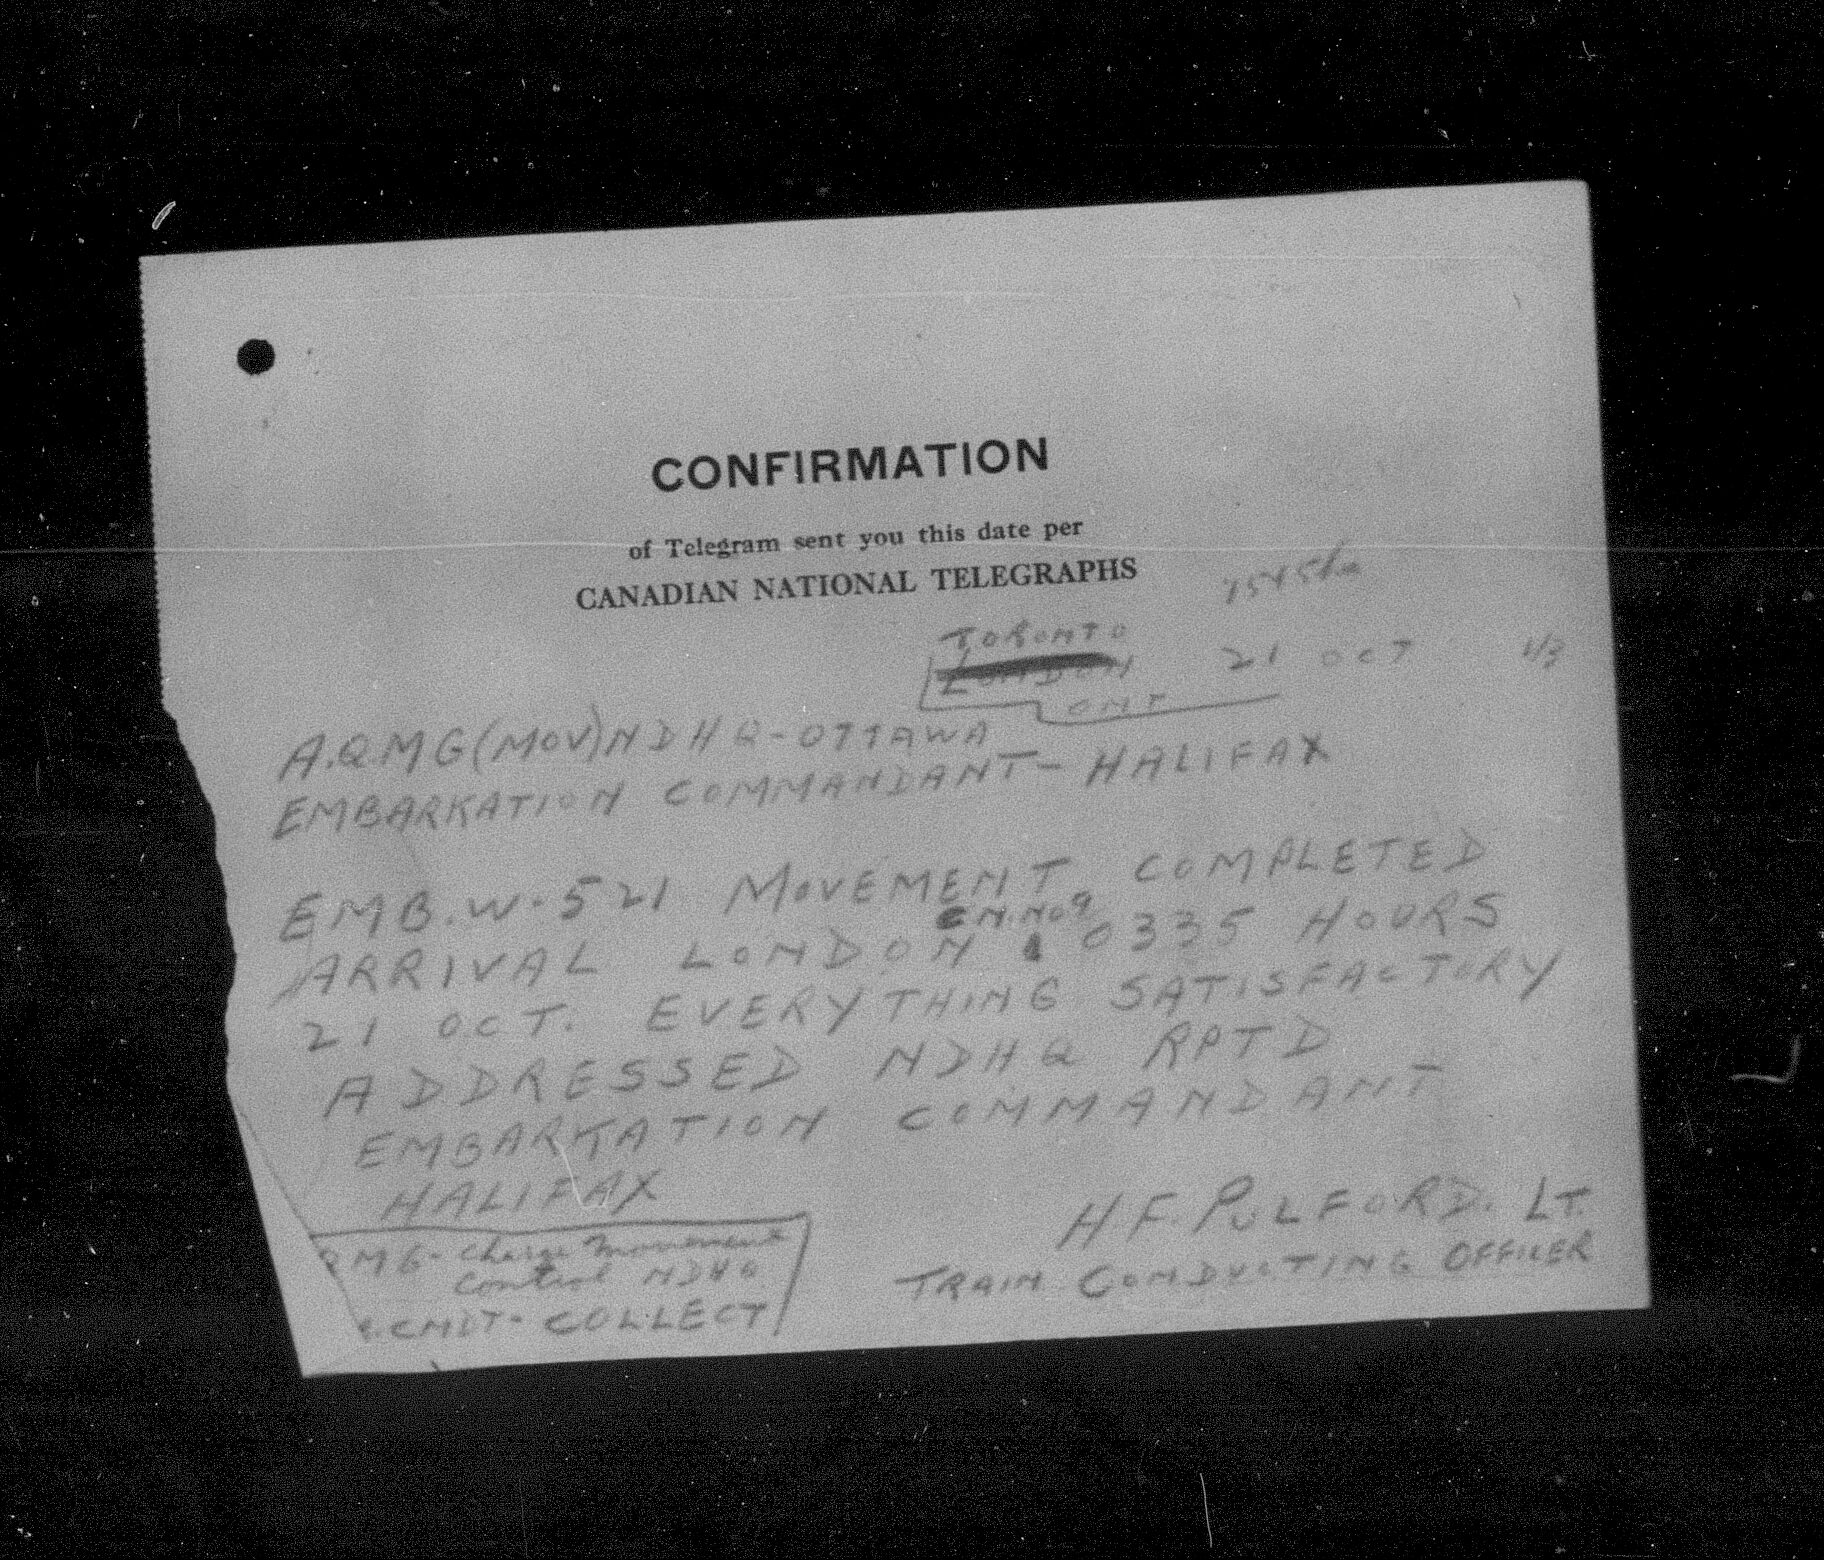 CONFIRMATION
of Telegram sent you this date per
CANADIAN NATIONAL TELEGRAPHS
TORONTO
LONDON 21 OCT
ONT
A.Q.M G (MOV) N D H Q - OTTAWA
EMBARKATION COMMANDANT - HALIFAX
EMB. W. 521 MOVEMENT COMPLETED
ARRIVAL LONDON 0335 HOURS
21 OCT. EVERYTHING SATISFACTORY
ADDRESSED NDHQ RPTD
EMBARKATION COMMANDANT
HALIFAX
H.F. PULFORD. LT.
TRAIN CONDUCTING OFFICER
QMG - Charge Movement
Control NDHQ
COLLECT